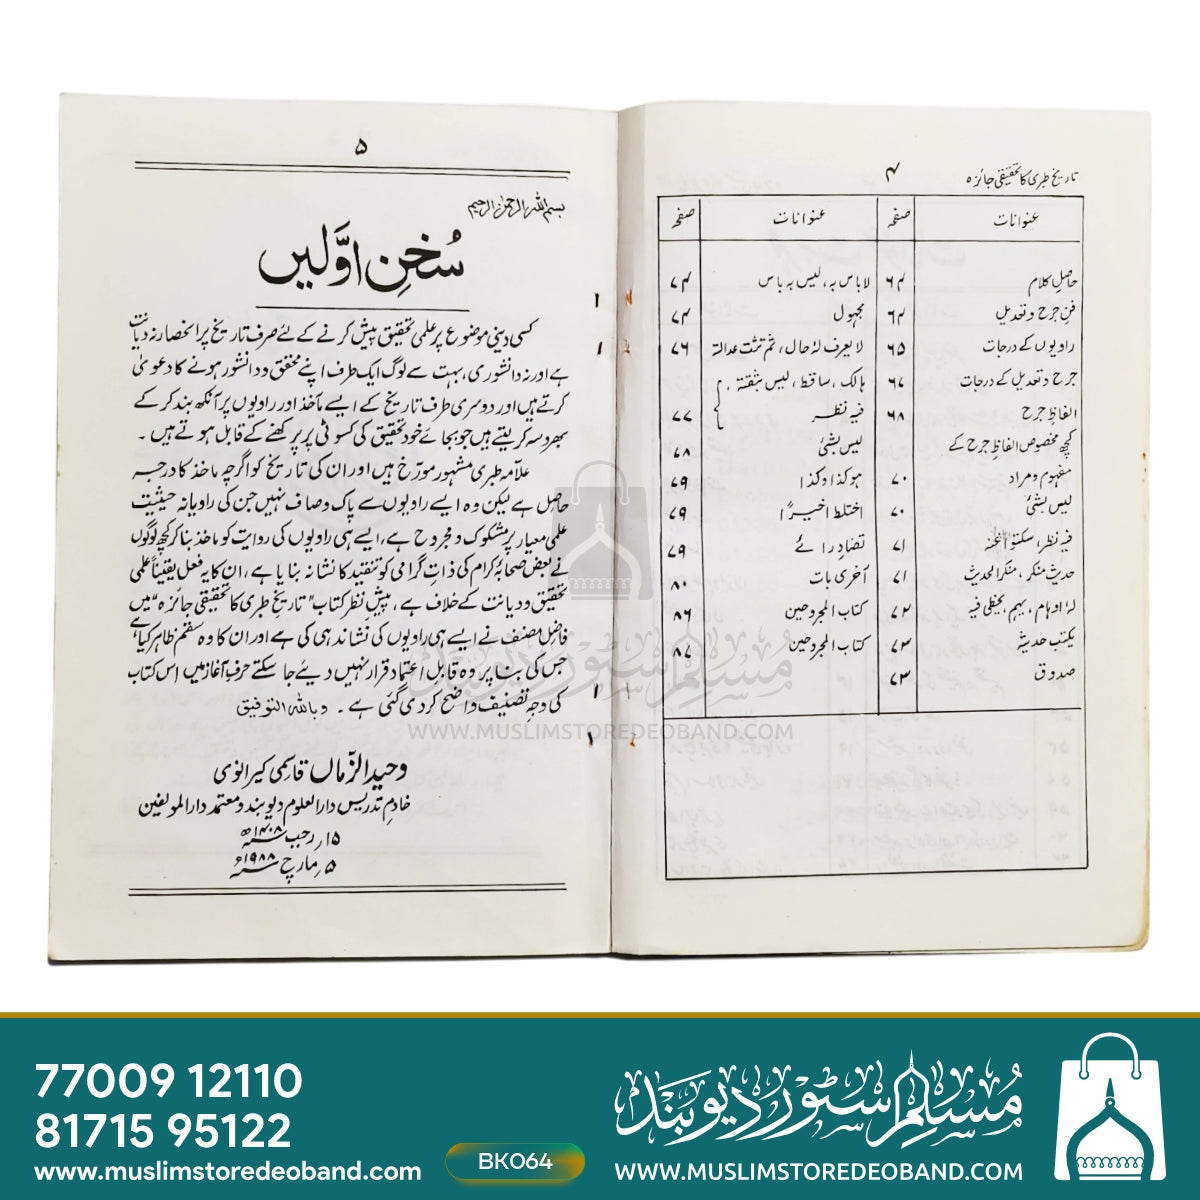 تاریخ طبری کا تحقیقی جائزہ
۴
عنوانات صفحہ عنوانات صفحہ
حاصل کلام ۶۴ لاباس بہ، لیس بہ باس ۷۴
فن جرح وتعدیل ۶۴ مجہول ۷۴
راویوں کے درجات ۶۵ لایعرف لہ حال، لم تثبت عدالتہ ۷۶
جرح وتعدیل کے درجات ۶۷ ہالک، ساقط، لیس بثقتہ،
الفاظ جرح ۶۸ فیہ نظر ۷۷
کچھ مخصوص الفاظ جرح کے لیس بشئ ۷۸
مفہوم ومراد ۷۰ ہوکذا وکذا ۷۹
لیس بشئ ۷۰ اختلط اخیرًا ۷۹
فیہ نظر، سکتوا عنہ ۷۱ تضاد رائے ۷۹
حدیث منکر، منکر الحدیث ۷۱ آخری بات ۸۰
لہ اوہام، یہم، یخطی فیہ ۷۲ کتاب المجروحین ۸۶
یکتب حدیثہ ۷۳ کتاب المجروحین ۸۷
صدوق ۷۳
۵
بسم اللہ الرحمن الرحیم
سُخنِ اوَّلیں
کسی دینی موضوع پر علمی تحقیق پیش کرنے کے لئے صرف تاریخ پر انحصار نہ دیانت
ہے اور نہ دانشوری، بہت سے لوگ ایک طرف اپنے محقق و دانشور ہونے کا دعویٰ
کرتے ہیں اور دوسری طرف تاریخ کے ایسے مآخذ اور راویوں پر آنکھ بند کر کے
بھروسہ کر لیتے ہیں جو بجائے خود تحقیق کی کسوٹی پر پرکھنے کے قابل ہوتے ہیں۔
علامہ طبری مشہور مورّخ ہیں اور ان کی تاریخ کو اگرچہ ماخذ کا درجہ
حاصل ہے لیکن وہ ایسے راویوں سے پاک وصاف نہیں جن کی راویانہ حیثیت
علمی معیار پر مشکوک و مجروح ہے، ایسے ہی راویوں کی روایت کو ماخذ بنا کر کچھ لوگوں
نے بعض صحابہ کرام کی ذات گرامی کو تنقید کا نشانہ بنایا ہے، ان کا یہ فعل یقیناً علمی
تحقیق و دیانت کے خلاف ہے، پیش نظر کتاب "تاریخ طبری کا تحقیقی جائزہ" میں
فاضل مصنف نے ایسے ہی راویوں کی نشاندہی کی ہے اور ان کا وہ سقم ظاہر کیا ہے
جس کی بنا پر وہ قابل اعتماد قرار نہیں دیئے جا سکتے حرف آغاز میں اس کتاب
کی وجہ تصنیف واضح کر دی گئی ہے۔ وباللہ التوفیق
وحید الزماں قاسمی کیرانوی
خادم تدریس دارالعلوم دیوبند و معتمد دارالمؤلفین
۱۵؍ رجب ۱۴۰۸ھ
۵؍ مارچ ۱۹۸۸ء
مسلم سٹور دیوبند
WWW.MUSLIMSTOREDEOBAND.COM
77009 12110
81715 95122
www.muslimstoredeoband.com
BK064
مسلم سٹور دیوبند
WWW.MUSLIMSTOREDEOBAND.COM